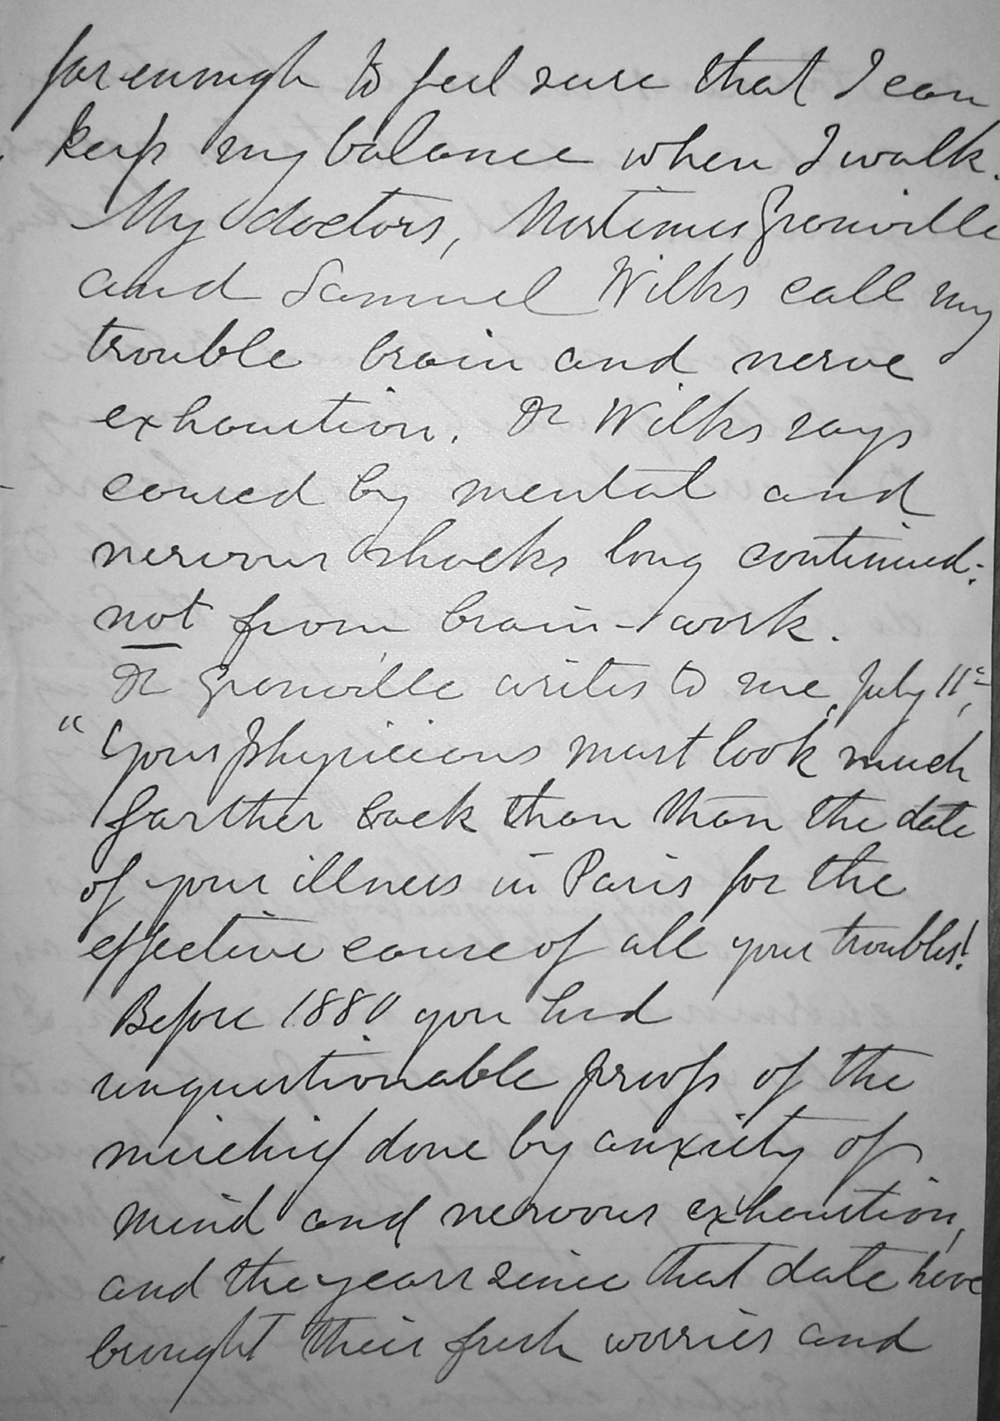 far enough to feel sure that I can
keep my balance when I walk.
My doctors, Mortimer Granville
and Samuel Wilks call my
trouble brain and nerve
exhaustion. Dr Wilks says
caused by mental and
nervous shocks long continued:
not from brain-work.
Dr Granville writes to me, July 11th,
"Your physicians must look much
farther back than than the date
of your illness in Paris for the
effective cause of all your troubles!
Before 1880 you had
unquestionable proofs of the
mischief done by anxiety of
mind and nervous exhaustion,
and the years since that date have
brought their fresh worries and